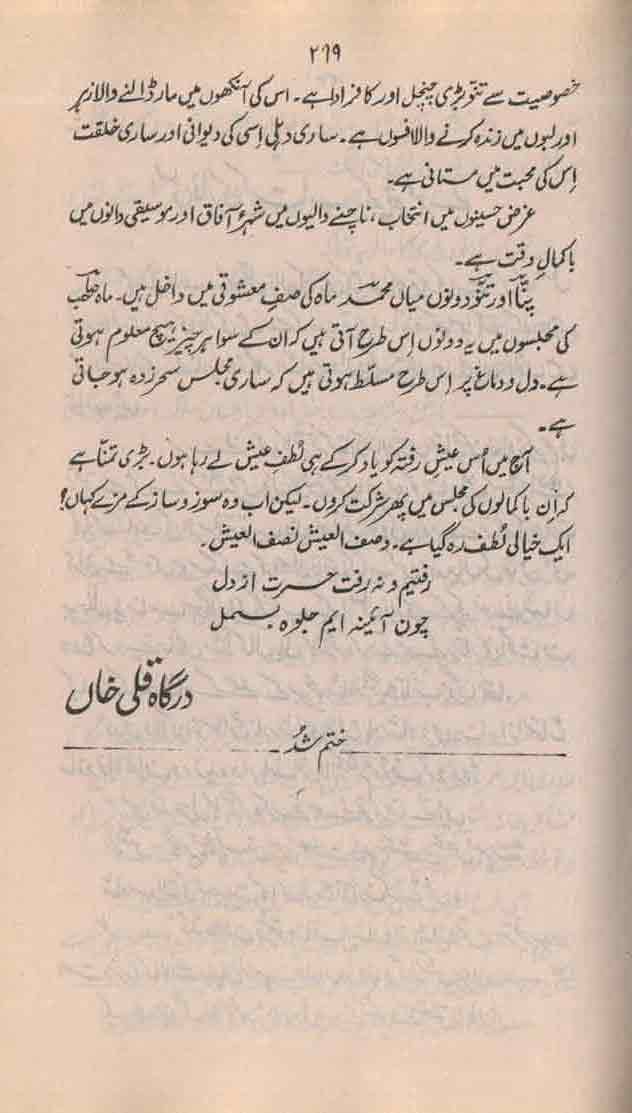 ۲۶۹
خصوصیت سے تنّو بڑی چنچل اور کافر ادا ہے۔ اس کی آنکھوں میں مار ڈالنے والا زہر
اور لبوں میں زندہ کرنے والا افسوں ہے۔ ساری دہلی اِسی کی دیوانی اور ساری خلقت
اِس کی محبت میں مستانی ہے۔
غرض حسینوں میں انتخاب، ناچنے والیوں میں شہرۂ آفاق اور موسیقی دانوں میں
باکمالِ وقت ہے۔
پنّا اور تنّو دونوں میاں محمد ماہ کی صفِ معشوقی میں داخل ہیں۔ ماہ
کی مجلسوں میں یہ دونوں اِس طرح آتی ہیں کہ ان کے سوا ہر چیز ہیچ معلوم ہوتی
ہے۔ دل و دماغ پر اِس طرح مسلّط ہوتی ہیں کہ ساری مجلس سحر زدہ ہو جاتی
ہے۔
آج میں اُس عیشِ رفتہ کو یاد کر کے ہی لُطفِ عیش لے رہا ہوں۔ بڑی تمنّا ہے
کہ اُن باکمالوں کی مجلس میں پھر شرکت کروں۔ لیکن اب وہ سوز و ساز کے مزے کہاں؟
ایک خیالی لُطف رہ گیا ہے۔ وصف العیش نصف العیش۔
رفتیم و نہ رفت حسرت از دل
چون آئینہ ایم جلوہ بسمل
درگاہ قلی خاں
ختم شُد